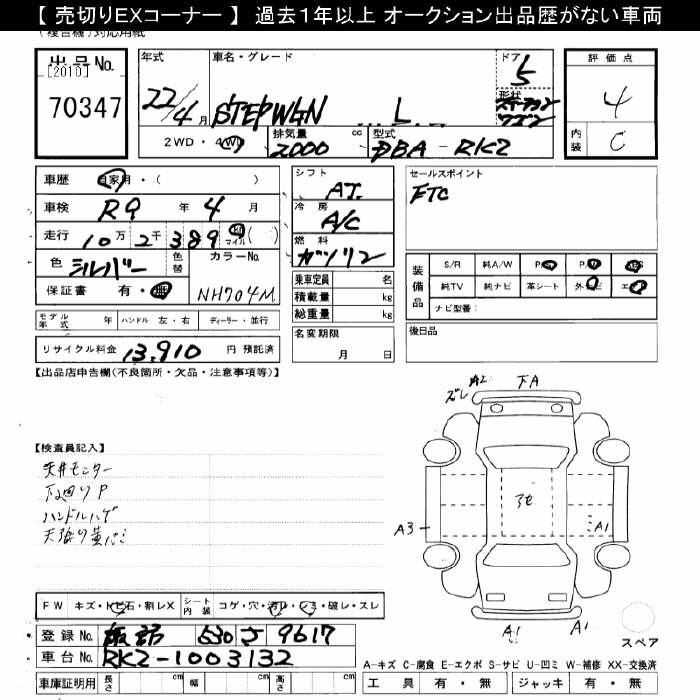 【 売切りEXコーナー 】 過去1年以上 オークション出品歴がない車両
(複合機)対応用紙
出品No.
[2010]
70347
年式
22/4月
車名・グレード
STEPWGN L
ドア
5
形状
ステーション
ワゴン
評価点
4
内装
C
2WD・4WD
排気量
2000
cc
型式
DBA-RK2
車歴
自家用・( )
車検
R9年4月
走行
10万2千389
km
マイル
( )
色
シルバー
色替
カラーNo.
NH704M
保証書
有・無
モデル年式
年
ハンドル
左・右
ディーラー・並行
リサイクル料金
13,910
円 預託済
シフト
AT
冷房
A/C
燃料
ガソリン
乗車定員
名
積載量
kg
総重量
kg
名変期限
月 日
セールスポイント
ETC
装備品
S/R
純A/W
P/S
P/W
ABS
純TV
純ナビ
革シート
エ
ナビ型番:
後日品
【出品店申告欄(不良箇所・欠品・注意事項等)】
【検査員記入】
天井モニター
下回りP
ハンドルハゲ
天張り黄バミ
ズレ
A2
下A
A3
A1
A1
A1
スペア
FW
キズ・トビ石・割レX
シート内装
コゲ・穴・汚レ・シミ・破レ・スレ
登録No.
諏訪 530 さ 9617
車台No.
RK2-1003132
車庫証明用
長さ
cm
幅
cm
高さ
cm
A-キズ C-腐食 E-エクボ S-サビ U-凹ミ W-補修 XX-交換済
工具
有・無
ジャッキ
有・無